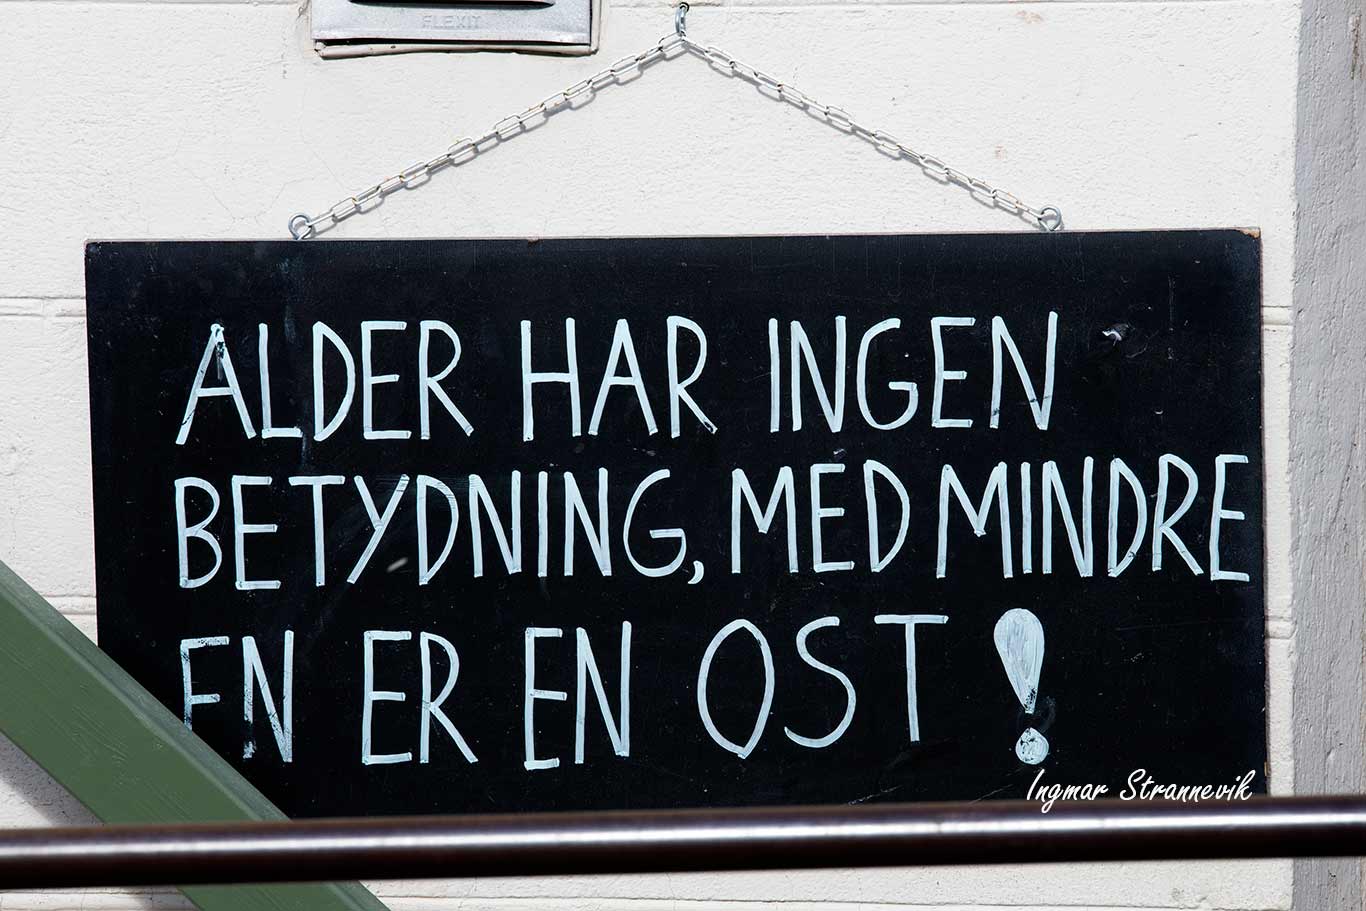 FLEXIT
ALDER HAR INGEN
BETYDNING, MED MINDRE
EN ER EN OST!
Ingmar Strannevik